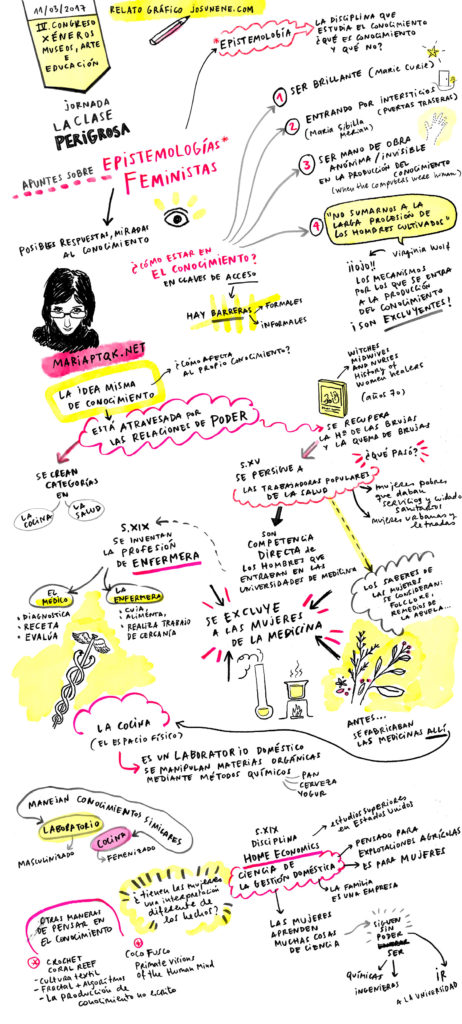 11/03/2017
III CONGRESO
XÉNEROS
MUSEOS, ARTE
E
EDUCACIÓN
RELATO GRÁFICO JOSUNENE.COM
JORNADA
LA CLASE
PERIGROSA
APUNTES SOBRE
EPISTEMOLOGÍAS*
FEMINISTAS
*EPISTEMOLOGÍA
LA DISCIPLINA QUE
ESTUDIA EL CONOCIMIENTO
¿QUÉ ES CONOCIMIENTO
Y QUÉ NO?
1 SER BRILLANTE (MARIE CURIE)
2 ENTRANDO POR INTERSTICIOS
(Maria Sibilla
Merian)
(PUERTAS TRASERAS)
3 SER MANO DE OBRA
ANÓNIMA/INVISIBLE
EN LA PRODUCCIÓN DEL
CONOCIMIENTO
(When the computers were human)
4 "NO SUMARNOS A LA
LARGA PROCESIÓN DE
LOS HOMBRES CULTIVADOS"
Virginia Wolf
¡¡OJO!!
LOS MECANISMOS
POR LOS QUE SE ENTRA
A LA PRODUCCIÓN
DEL CONOCIMIENTO
¡SON EXCLUYENTES!
POSIBLES RESPUESTAS, MIRADAS
AL CONOCIMIENTO
¿CÓMO ESTAR EN
EL CONOCIMIENTO?
EN CLAVES DE ACCESO
HAY BARRERAS
FORMALES
INFORMALES
MARIAPTQK.NET
LA IDEA MISMA
DE CONOCIMIENTO
¿CÓMO AFECTA
AL PROPIO CONOCIMIENTO?
ESTÁ ATRAVESADA POR
LAS RELACIONES DE PODER
WITCHES
MIDWIVES
AND NURSES
History of
Women healers
(años 70)
SE RECUPERA
LA Hª DE LAS BRUJAS
Y LA QUEMA DE BRUJAS
¿QUÉ PASÓ?
SE CREAN
CATEGORÍAS
EN
LA COCINA
LA SALUD
S.XV
SE PERSIGUE A
LAS TRABAJADORAS POPULARES
DE LA SALUD
mujeres pobres
que daban
servicios y cuidado
sanitarios
mujeres urbanas y
letradas
S.XIX
SE INVENTAN
LA PROFESIÓN
DE ENFERMERA
SON
COMPETENCIA
DIRECTA DE
LOS HOMBRES QUE
ENTRABAN EN LAS
UNIVERSIDADES DE MEDICINA
EL MÉDICO
• DIAGNOSTICA
• RECETA
• EVALÚA
LA ENFERMERA
• CUIA,
• ALIMENTA,
• REALIZA TRABAJO
DE CERCANÍA
SE EXCLUYE
A LAS MUJERES
DE LA MEDICINA
LOS SABERES
DE LAS MUJERES
SE CONSIDERAN:
FOLCLORE,
REMEDIOS DE
LA ABUELA...
LA COCINA
(EL ESPACIO FÍSICO)
ANTES...
SE FABRICABAN
LAS MEDICINAS ALLÍ
ES UN LABORATORIO DOMÉSTICO
SE MANIPULAN MATERIAS ORGÁNICAS
MEDIANTE MÉTODOS QUÍMICOS
PAN
CERVEZA
YOGUR
MANEJAN CONOCIMIENTOS SIMILARES
LABORATORIO
MASCULINIZADO
COCINA
FEMENIZADO
S.XIX
DISCIPLINA
HOME ECONOMICS
CIENCIA DE
LA GESTIÓN DOMÉSTICA
estudios superiores
en Estados Unidos
PENSADO PARA
EXPLOTACIONES AGRÍCOLAS
ES PARA MUJERES
LA FAMILIA
ES UNA EMPRESA
¿tienen las mujeres
una interpretación
diferente de
los hechos?
OTRAS MANERAS
DE PENSAR EN
EL CONOCIMIENTO
CROCHET
CORAL REEF
- Cultura textil
- Fractal + Algoritmos
- La producción de
conocimiento no escrito
COCO FUSCO
Primate Visions
of the Human Mind
LAS MUJERES
APRENDEN
MUCHAS COSAS
DE CIENCIA
SIGUEN
SIN
PODER
SER
QUÍMICAS
INGENIEROS
IR
A LA UNIVERSIDAD